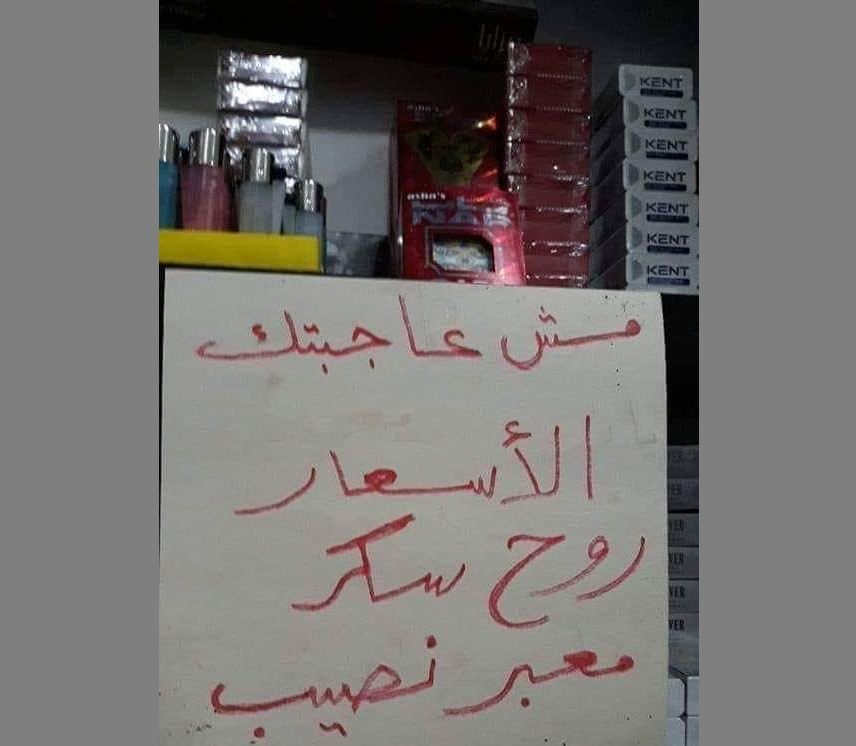 KENT
KENT
KENT
KENT
KENT
KENT
KENT
مش عاجبتك
الأسعار
روح سكر
معبر نصيب